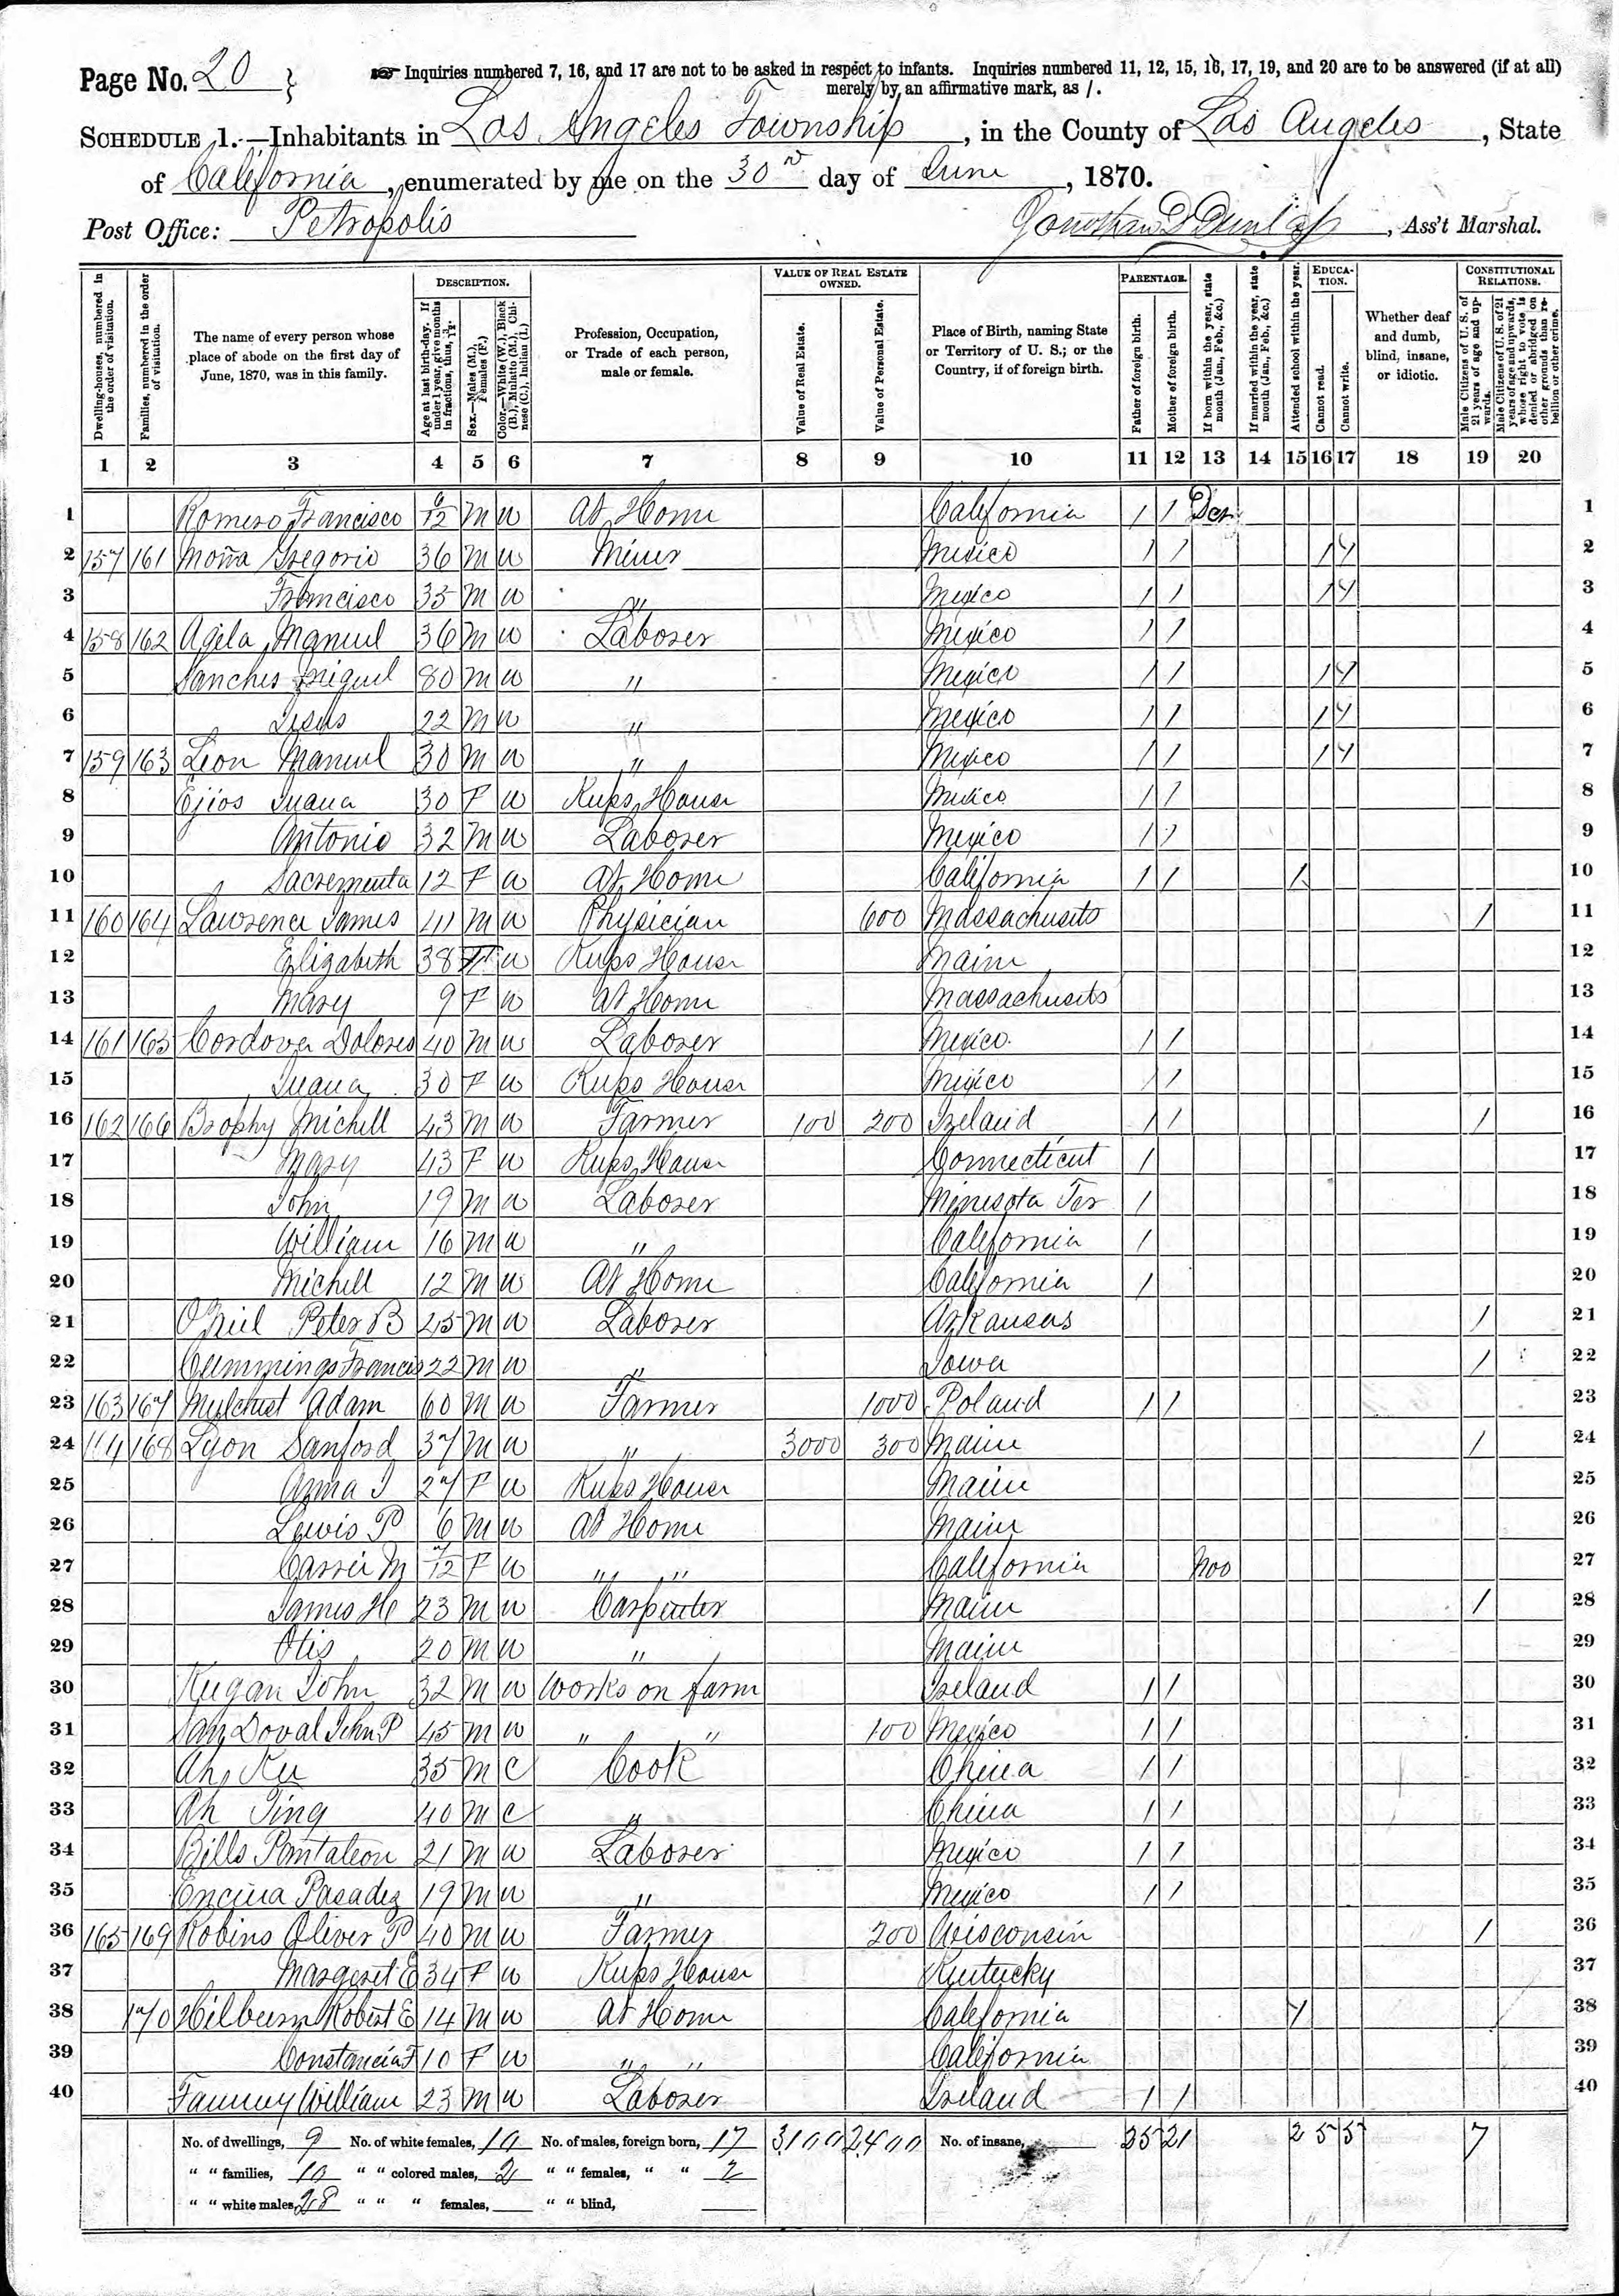 Page No. 20
Inquiries numbered 7, 16, and 17 are not to be asked in respect to infants. Inquiries numbered 11, 12, 15, 16, 17, 19, and 20 are to be answered (if at all)
merely by an affirmative mark, as /.
SCHEDULE 1.—Inhabitants in Los Angeles Township, in the County of Los Angeles, State
of California, enumerated by me on the 30 day of June, 1870.
Post Office: Petropolis
Dunlap, Ass't Marshal.
Dwelling-houses, numbered in the order of visitation.
Families, numbered in the order of visitation.
The name of every person whose place of abode on the first day of June, 1870, was in this family.
DESCRIPTION.
Age at last birth-day. If under 1 year, give months in fractions, thus, 3/12.
Sex.—Males (M.), Females (F.)
Color.—White (W.), Black (B.), Mulatto (M.), Chinese (C.), Indian (I.)
Profession, Occupation, or Trade of each person, male or female.
VALUE OF REAL ESTATE OWNED.
Value of Real Estate.
Value of Personal Estate.
Place of Birth, naming State or Territory of U. S.; or the Country, if of foreign birth.
PARENTAGE.
Father of foreign birth.
Mother of foreign birth.
If born within the year, state month (Jan. Feb., &c.)
If married within the year, state month (Jan. Feb., &c.)
Attended school within the year.
EDUCATION.
Cannot read.
Cannot write.
Whether deaf and dumb, blind, insane, or idiotic.
CONSTITUTIONAL RELATIONS.
Male Citizens of U. S. of 21 years of age and upwards.
Male Citizens of U. S. of 21 years of age and upwards, whose right to vote is denied or abridged on other grounds than rebellion or other crime.
1 2 3 4 5 6 7 8 9 10 11 12 13 14 15 16 17 18 19 20
1 Romero Francisco 6/12 M W At Home California / / Dec 1
2 157 161 Gregorio 36 M W Miner Mexico / / / / 2
3 Francisco 35 M W " Mexico / / / / 3
4 158 162 Manuel 36 M W Laborer Mexico / / 4
5 Sanches Miguel 80 M W " Mexico / / / / 5
6 Jesus 22 M W " Mexico / / / / 6
7 159 163 Leon Manuel 30 M W " Mexico / / / / 7
8 Juana 30 F W Keeps House Mexico / / 8
9 Antonio 32 M W Laborer Mexico / / 9
10 Sacrementa 12 F W At Home California / / / 10
11 160 164 Lawrence James 41 M W Physician 600 Massachusits / 11
12 Elizabeth 38 F W Keeps House Maine 12
13 Mary 9 F W At Home Massachusits 13
14 161 165 Cordova Dolores 40 M W Laborer Mexico / / 14
15 Juana 30 F W Keeps House Mexico / / 15
16 162 166 Brophy Michell 43 M W Farmer 100 200 Ireland / / / 16
17 Mary 43 F W Keeps House Connecticut / 17
18 John 19 M W Laborer Minesota Ter / 18
19 William 16 M W " California / 19
20 Michell 12 M W At Home California / 20
21 Peter B 25 M W Laborer Arkansas / 21
22 Cummings Francis 22 M W " Iowa / 22
23 163 167 Adam 60 M W Farmer 1000 Poland / / 23
24 164 168 Lyon Sanford 37 M W " 3000 300 Maine / 24
25 27 F W Keeps House Maine 25
26 Lewis P 6 M W At Home Maine 26
27 Carrie M 7/12 F W " " California Nov 27
28 James H 23 M W Carpenter Maine / 28
29 Otis 20 M W " Maine 29
30 John 32 M W Works on farm Ireland / / 30
31 San Doval John P 45 M W " " 100 Mexico / / 31
32 Ah 35 M C Cook China / / 32
33 Ah 40 M C " China / / 33
34 Bills Pantaleon 21 M W Laborer Mexico / / 34
35 Encina 19 M W " Mexico / / 35
36 165 169 Robins Oliver P 40 M W Farmer 200 Wisconsin / 36
37 Margaret E 34 F W Keeps House Kentucky 37
38 170 Hilburn Robert E 14 M W At Home California / 38
39 Constancia F 10 F W " " California 39
40 William 23 M W Laborer Ireland / / 40
No. of dwellings, 9 No. of white females, 10 No. of males, foreign born, 17 3100 2400 No. of insane, 25 21 2 5 5 7
" " families, 10 " " colored males, 2 " " females, " " 2
" " white males, 28 " " " females, " " blind,